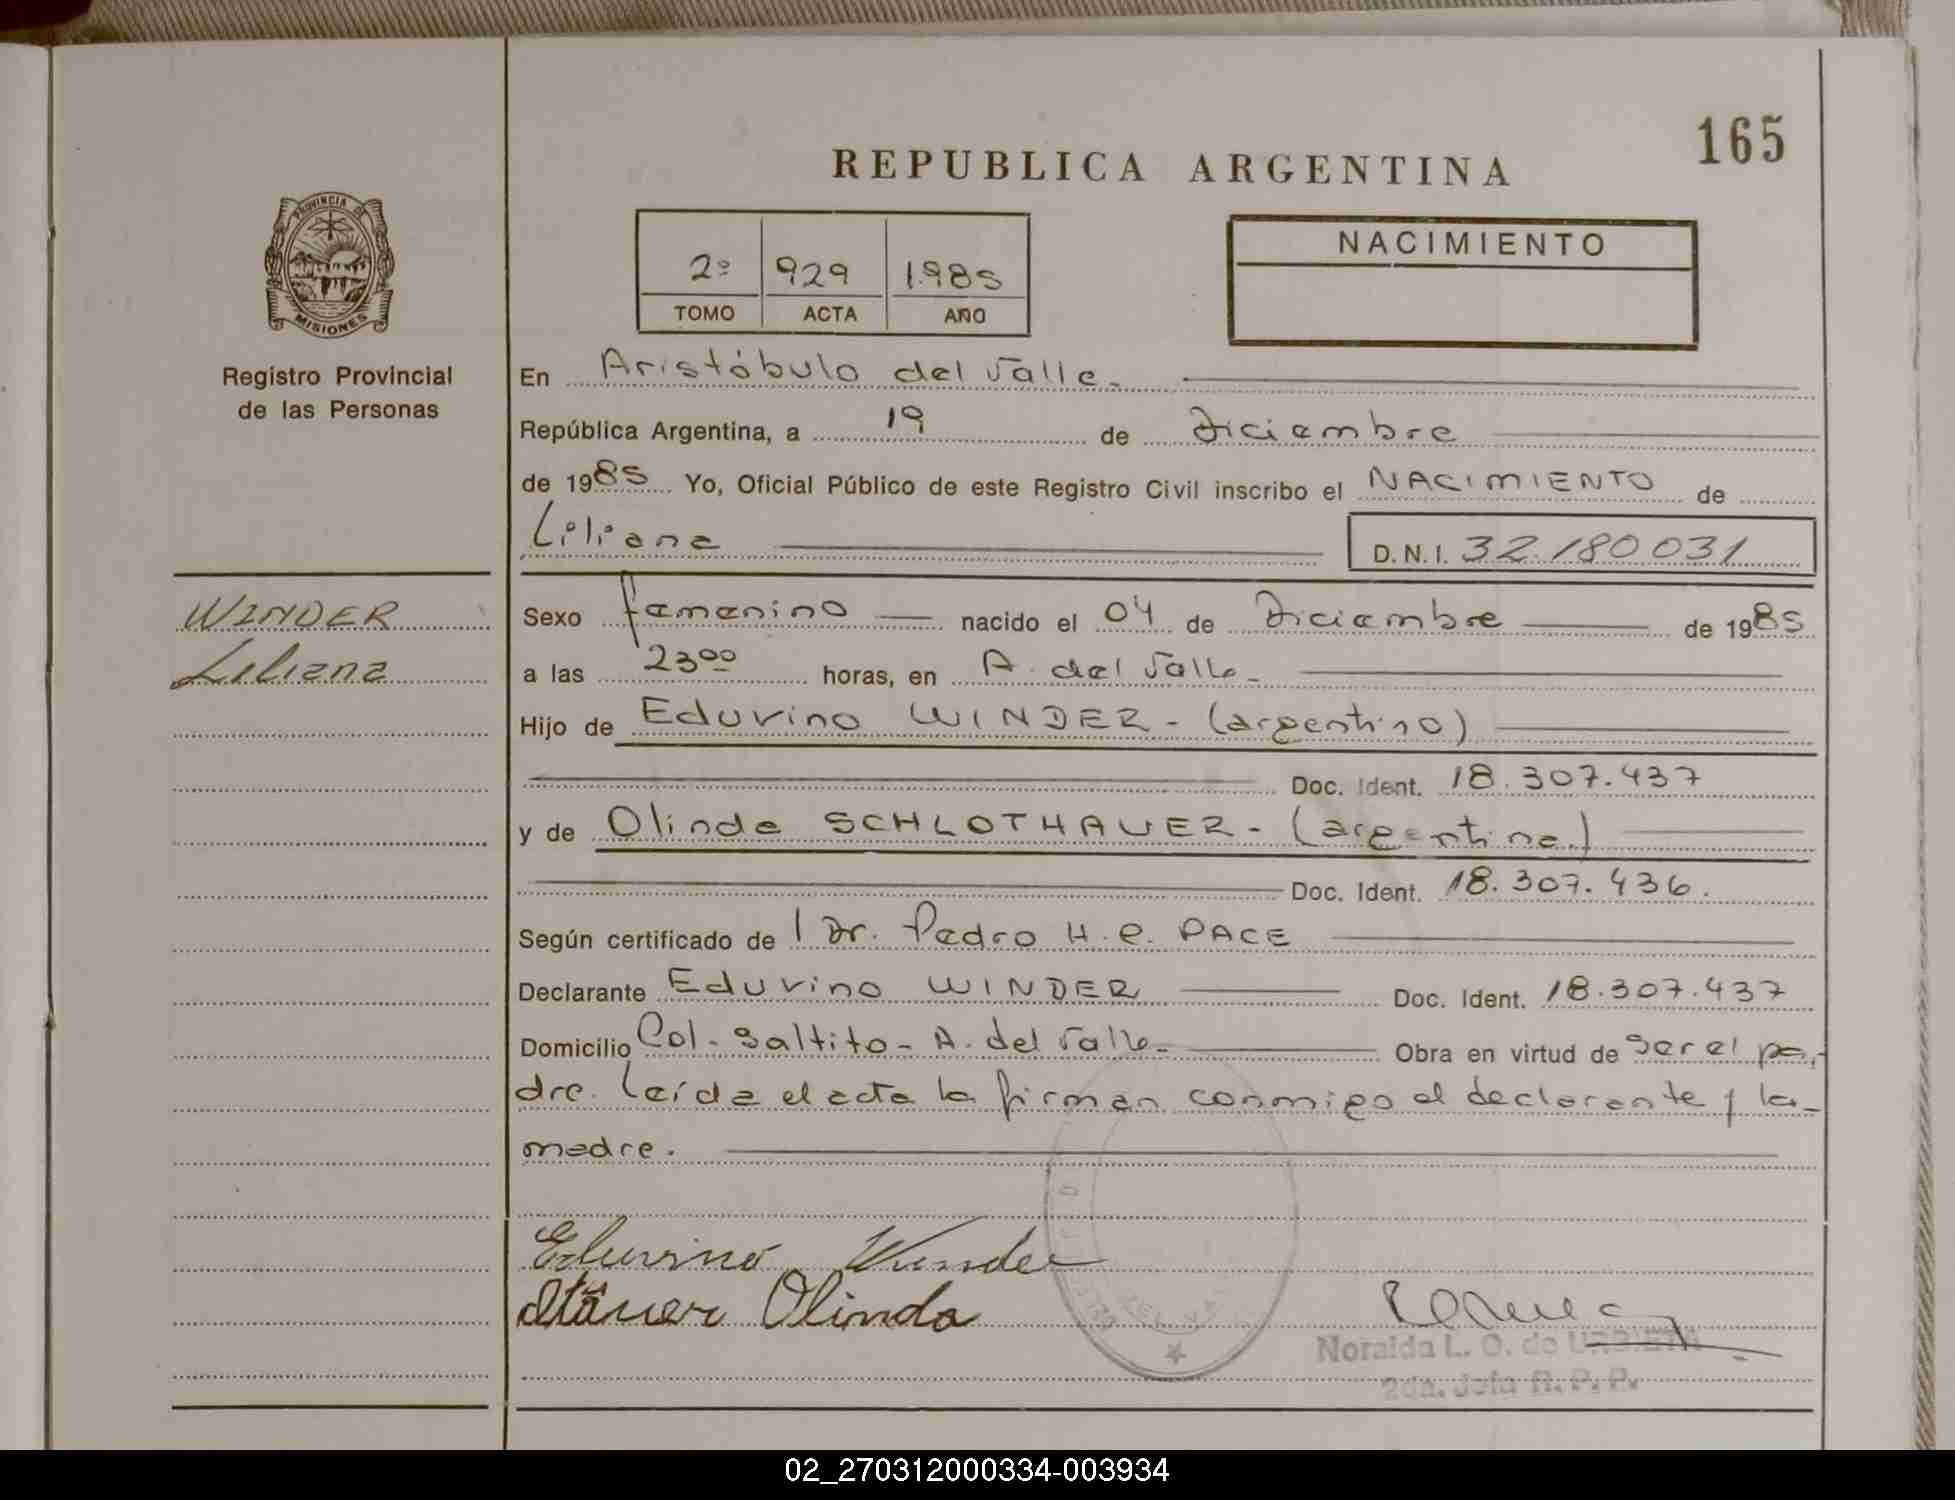 165
REPUBLICA ARGENTINA
PROVINCIA DE
MISIONES
Registro Provincial
de las Personas
2º 929 1.985
TOMO ACTA AÑO
NACIMIENTO
En Aristóbulo del Valle.
República Argentina, a 19 de Diciembre
de 1985 Yo, Oficial Público de este Registro Civil inscribo el NACIMIENTO de
Liliana D.N.I. 32.180031
WINDER
Liliana
Sexo femenino nacido el 04 de Diciembre de 1985
a las 23⁰⁰ horas, en A. del Valle.
Hijo de Eduvino WINDER - (argentino)
Doc. Ident. 18.307.437
y de Olinda SCHLOTHAUER - (argentina)
Doc. Ident. 18.307.436.
Según certificado de Dr. Pedro H. e. PACE
Declarante Eduvino WINDER Doc. Ident. 18.307.437
Domicilio Col. Saltito - A. del Valle - Obra en virtud de ser el pa-
dre. Leída el acta la firman conmigo el declarante y la
madre.
Eduvino Winder
Olinda
Noraida L. O. de URBIETA
2da. Jefa R. P. P.
02_270312000334-003934